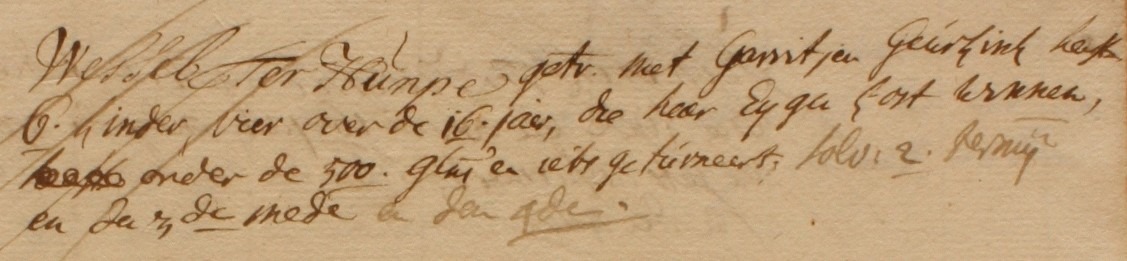 Wessel Ter Hünpe getr. met Gerritjen Geurkink heeft
6. kinder vier over de 16. jaer, die haer Eygen kost winnen,
onder de 500. gl: en iets getürneert, solv: 2. termijn
en den 3 de mede en den 4de.